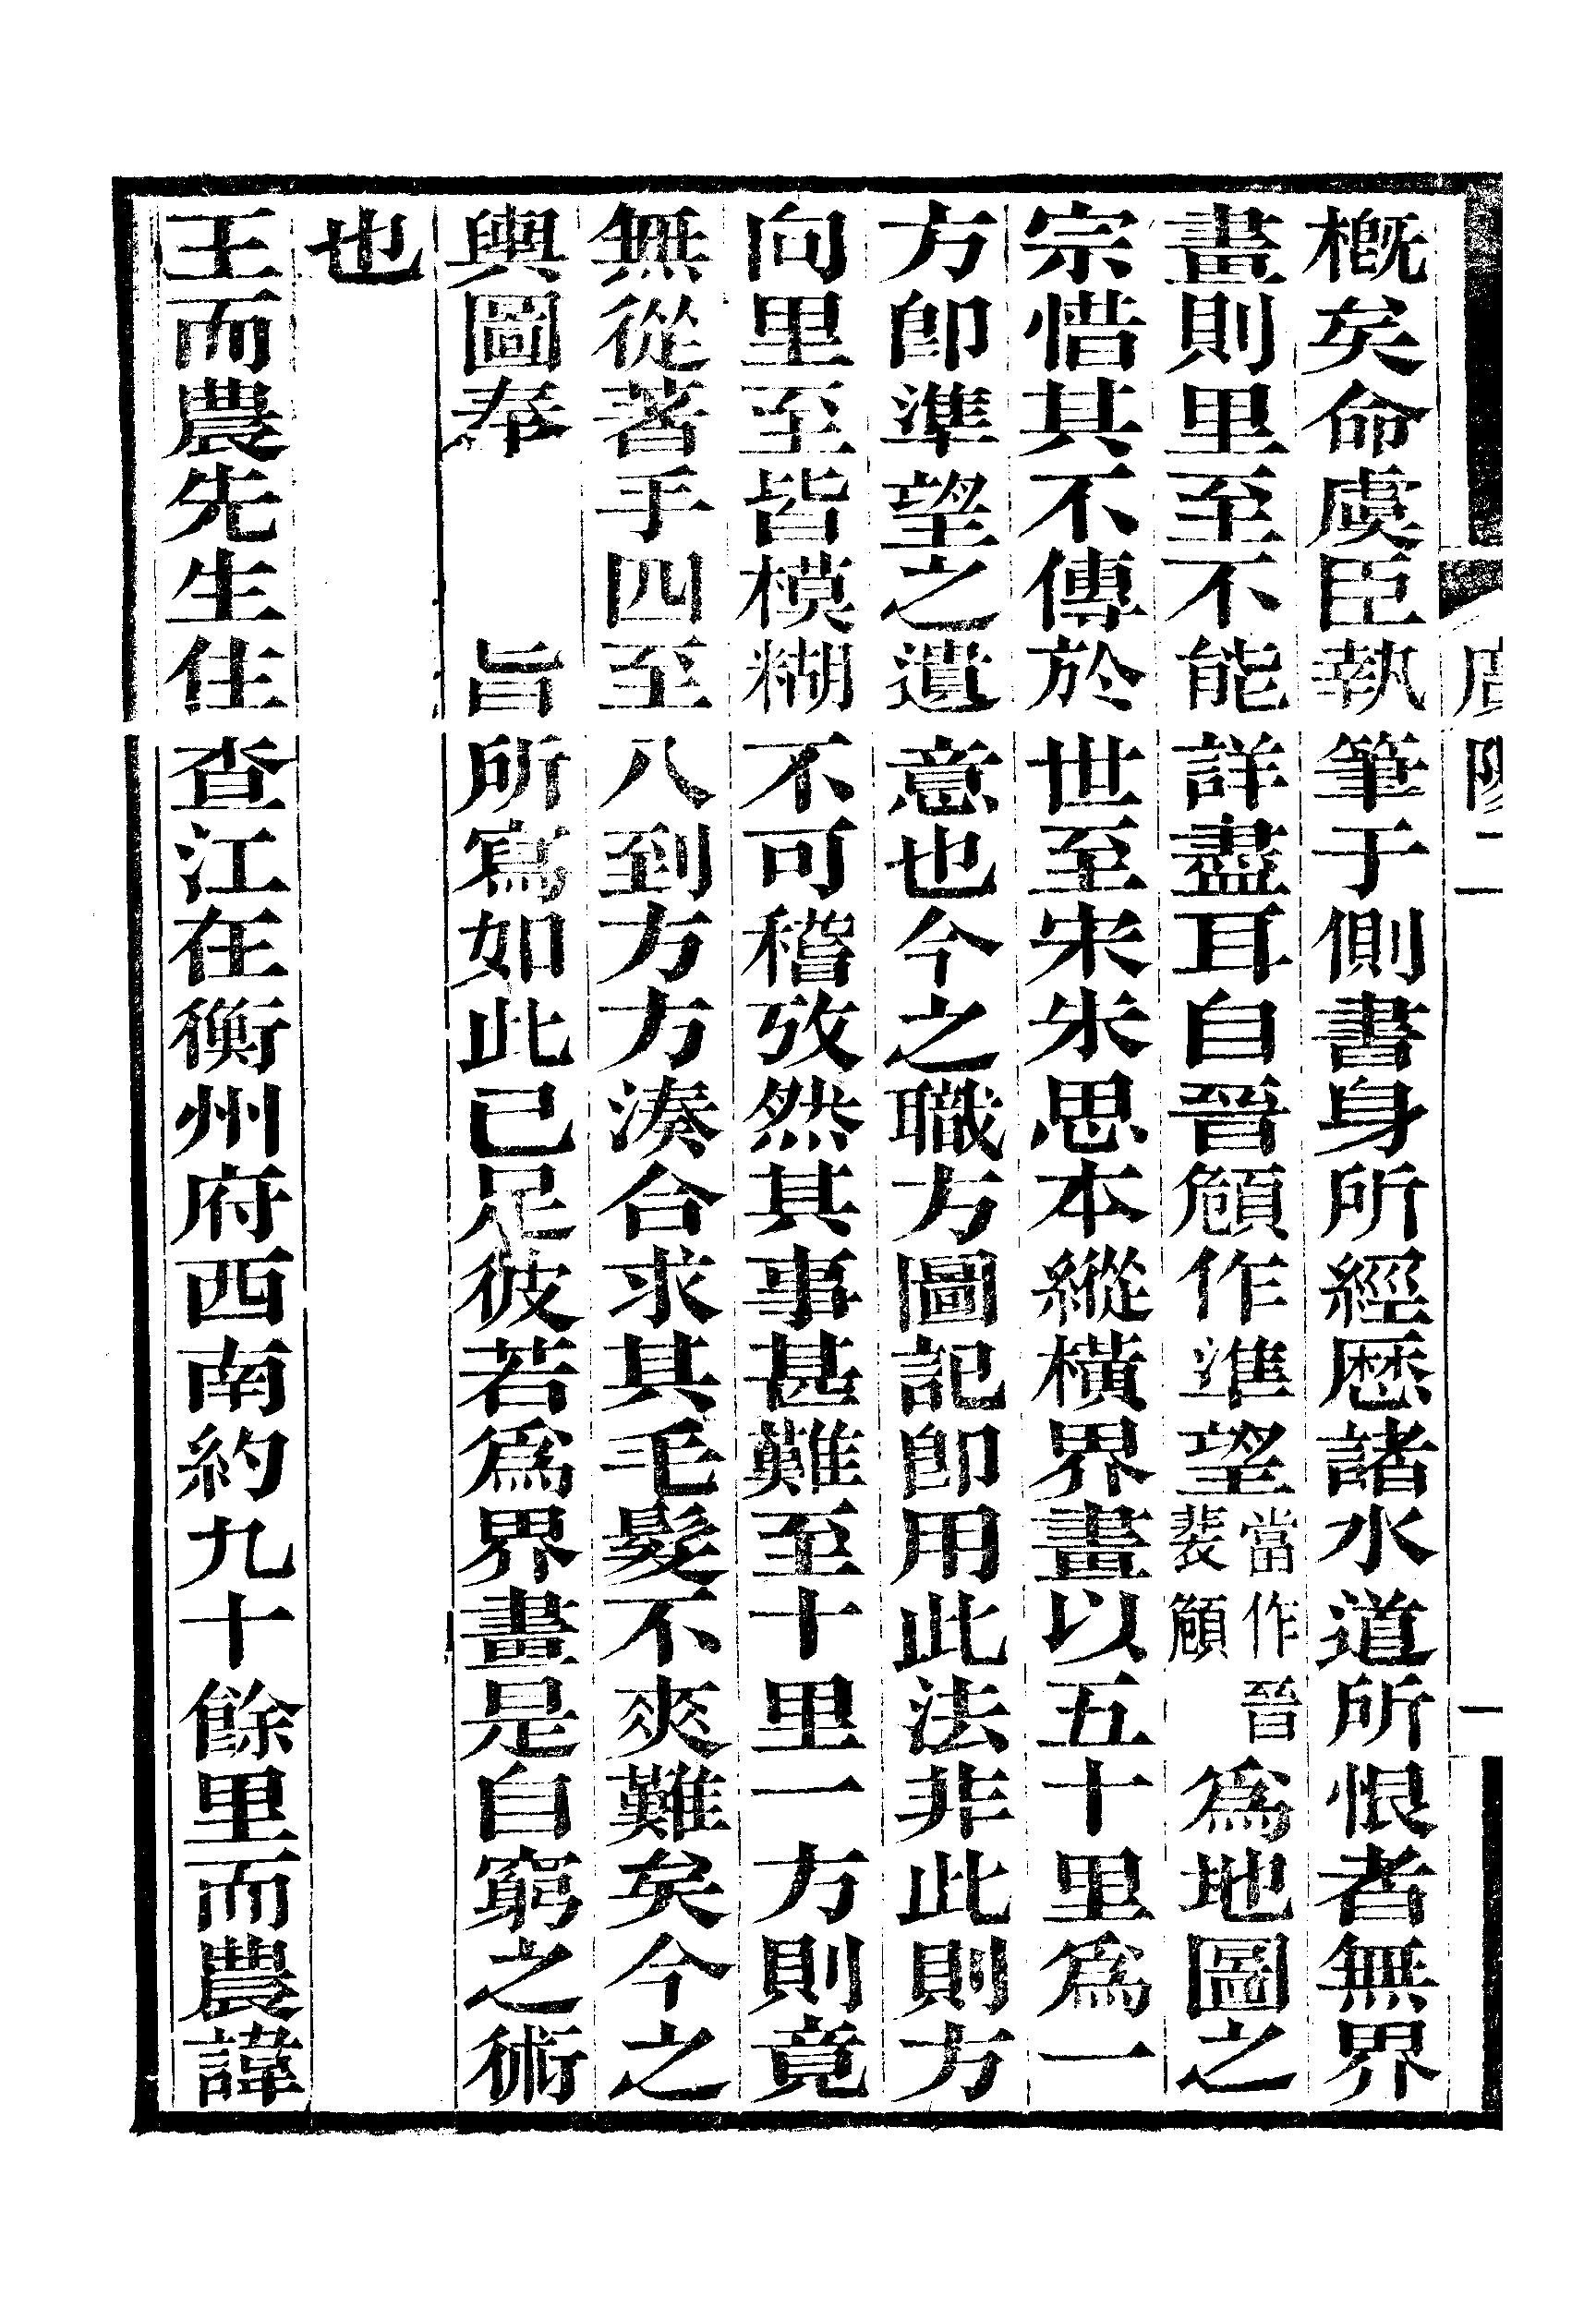 槪矣命虞臣執筆于側書身所經歷諸水道所恨者無界
畫則里至不能詳盡耳自晉頠作準望當作晉裴頠爲地圖之
宗惜其不傳於世至宋朱思本縱橫界畫以五十里爲一
方卽準望之遺意也今之職方圖記卽用此法非此則方
向里至皆模糊不可稽攷然其事甚難至十里一方則竟
無從著手四至八到方方湊合求其毛髮不爽難矣今之
輿圖奉 旨所寫如此已足彼若爲界畫是自窮之術
也
王而農先生住查江在衡州府西南約九十餘里而農諱